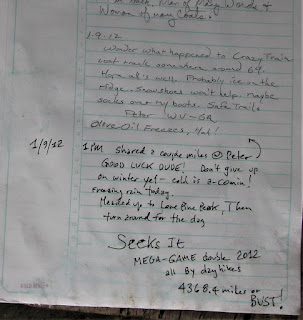 Man of Many Words &
Woman of many Coats!
1-9-12
Wonder what happened to Crazy Train
Last mark somewhere around 69.
Hope all's well. Probably ice on the
ridge - snowshoes won't help. Maybe
socks over my boots. Safe Trails
Peter WV-GA
Olive Oil Freezes, Ha!
1/9/12 1 PM Shared a couple miles @ Peter
GOOD LUCK DUDE! Don't give up
on winter yet - cold is a-comin!
Freezing rain today.
Headed up to Lone Pine Peak, Then
turn around for the day
Seeks It
MEGA-GAME double 2012
all By day hikes
4368.4 miles or
BUST!